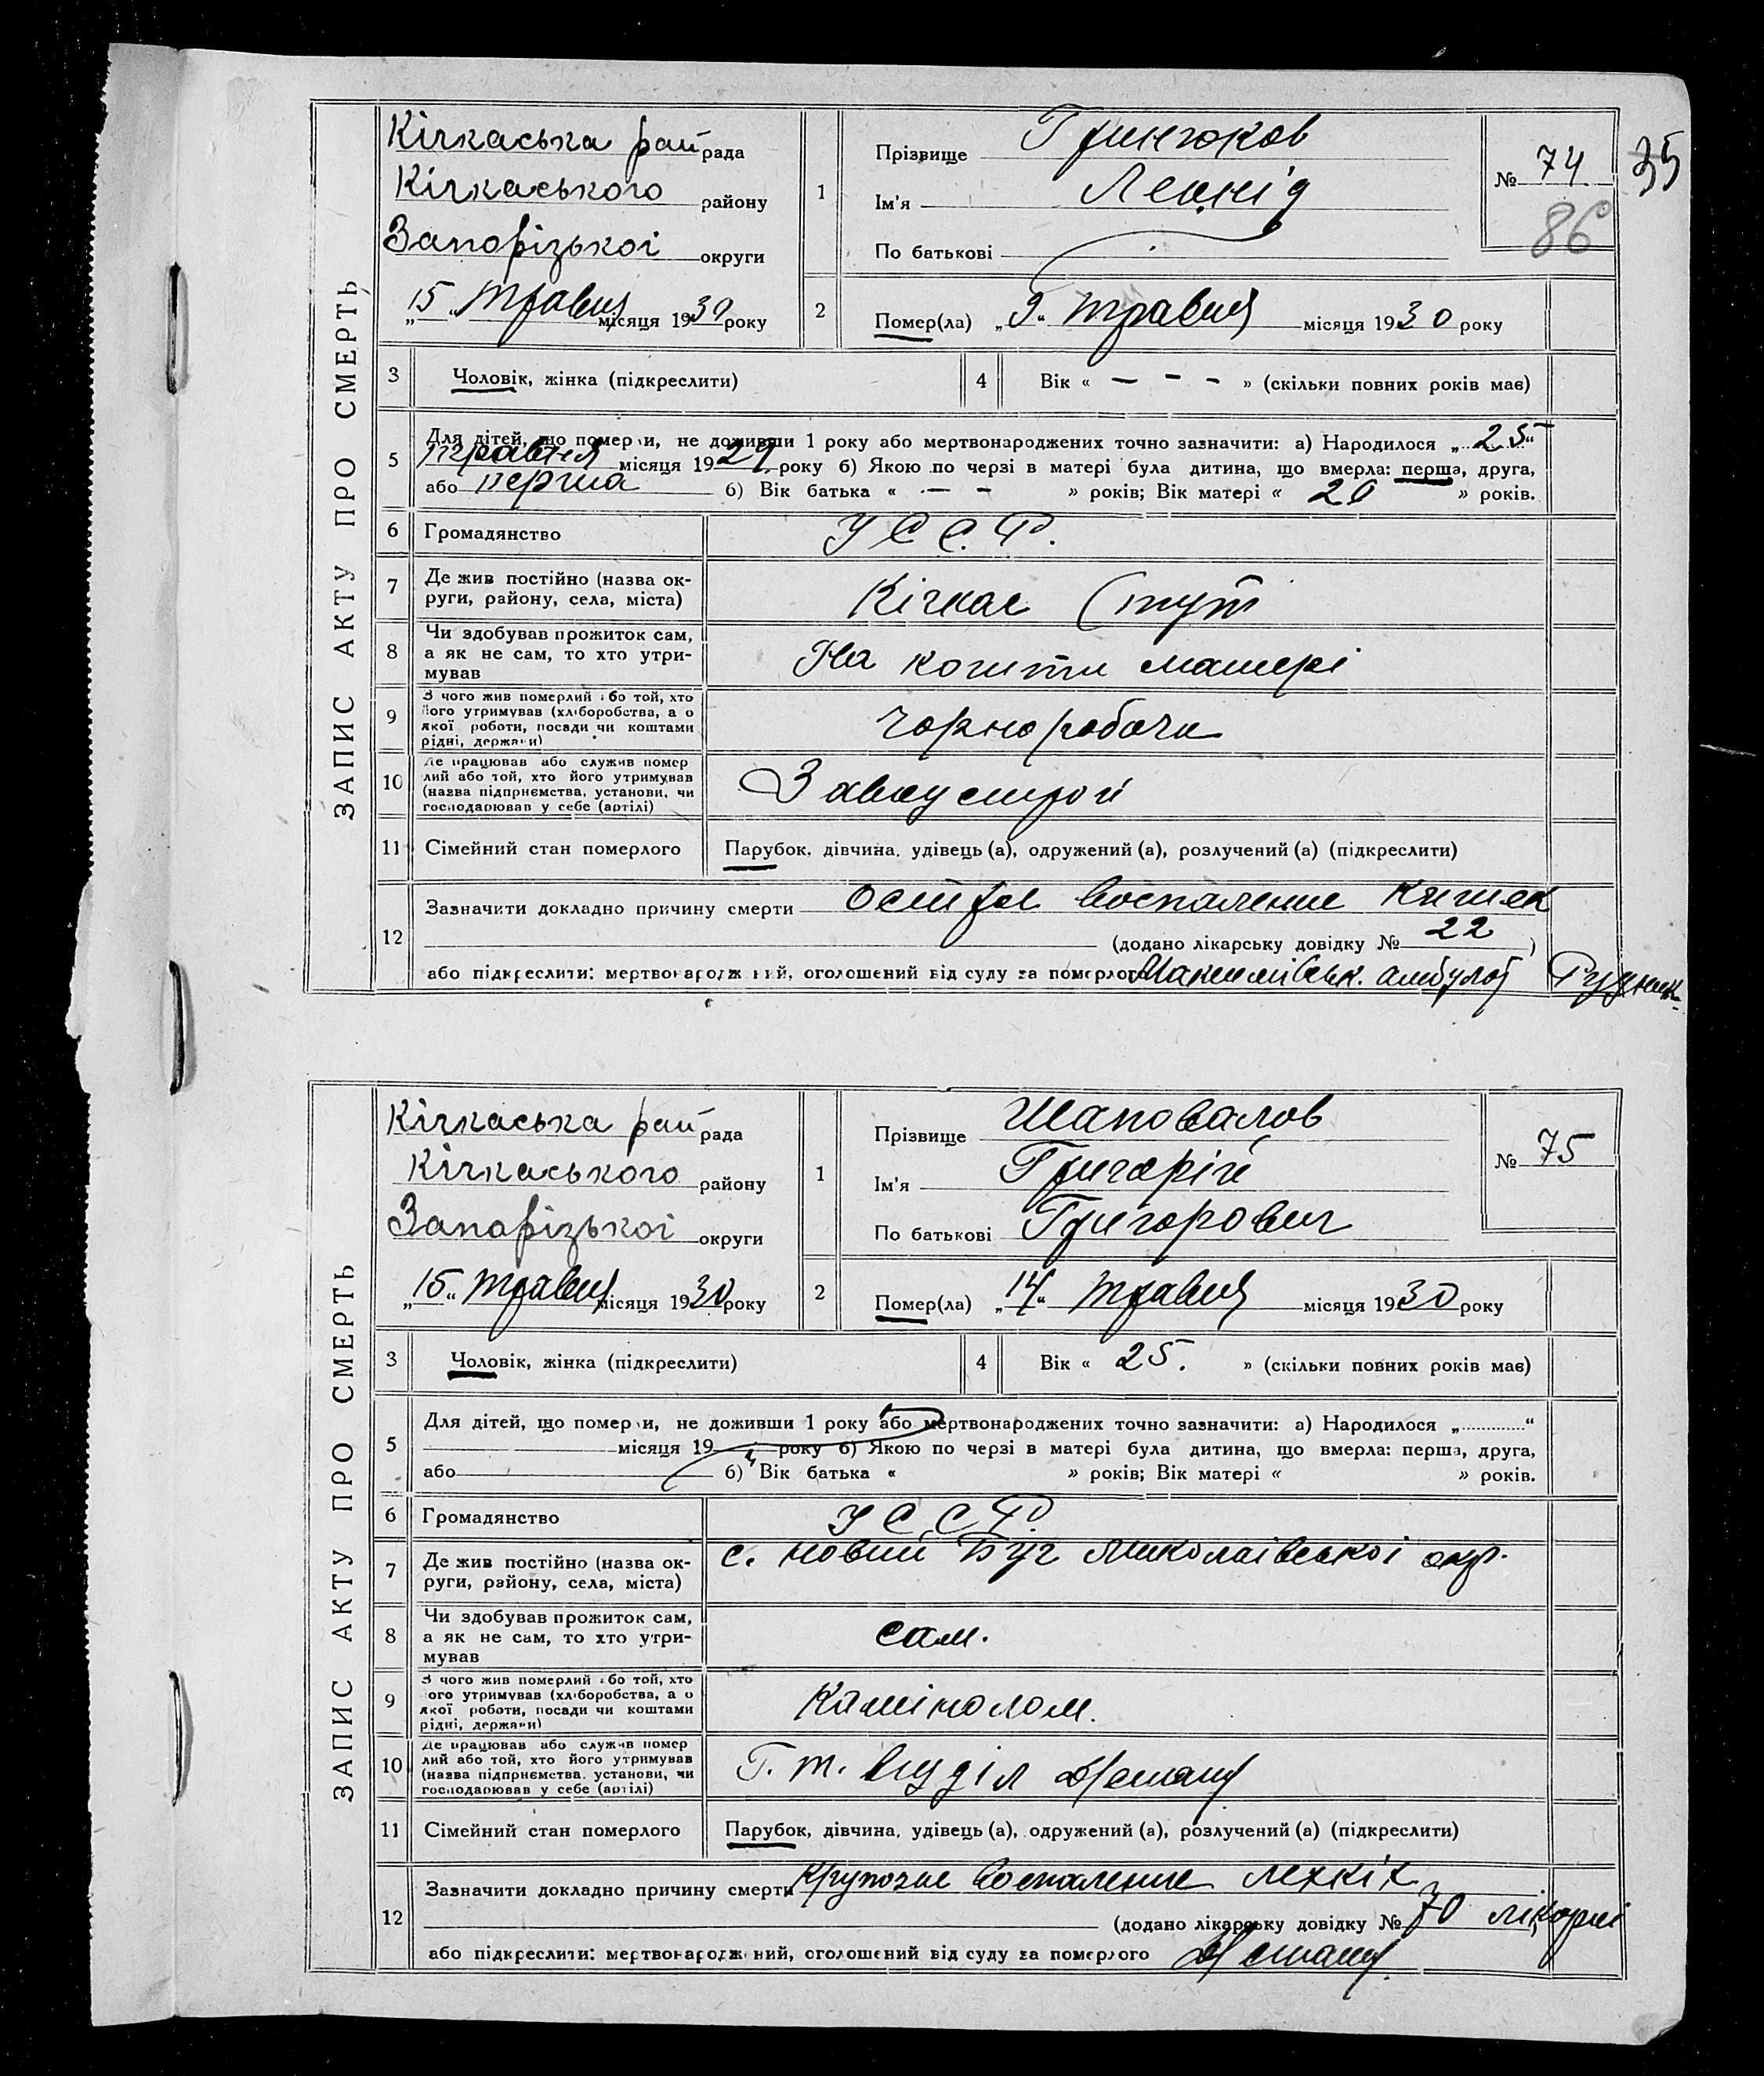 ЗАПИС АКТУ ПРО СМЕРТЬ
Кічкаська рай рада
Кічкаського району
Запорізької округи
„15“ травня місяця 1930 року
1 Прізвище
Ім'я Леонід
По батькові
№ 74
35
86
2 Помер(ла) „9“ травня місяця 1930 року
3 Чоловік, жінка (підкреслити)
4 Вік « — - - » (скільки повних років має)
5 Для дітей, що померли, не доживши 1 року або мертвонароджених точно зазначити: а) Народилося „25“
травня місяця 1929 року б) Якою по черзі в матері була дитина, що вмерла: перша, друга,
або перша б) Вік батька « — - » років; Вік матері « 20 » років.
6 Громадянство У С С. Р.
7 Де жив постійно (назва ок-
руги, району, села, міста) Кічкас (тут
8 Чи здобував прожиток сам,
а як не сам, то хто утри-
мував На кошти матері
9 З чого жив померлий або той, хто
його утримував (хліборобства, а о
якої роботи, посади чи коштами
рідні, держави) чорноробоча
10 Де працював або служив помер
лий або той, хто його утримував
(назва підприємства, установи, чи
господарював у себе (артілі)
11 Сімейний стан померлого Парубок, дівчина, удівець (а), одружений (а), розлучений (а) (підкреслити)
12 Зазначити докладно причину смерти острое воспаление кишек
(додано лікарську довідку № 22 )
або підкреслити: мертвонароджений, оголошений від суду за померлого амбулат
ЗАПИС АКТУ ПРО СМЕРТЬ
Кічкаська рай рада
Кічкаського району
Запорізької округи
„15“ травня місяця 1930 року
1 Прізвище Шаповалов
Ім'я Григорій
По батькові Григорович
№ 75
2 Помер(ла) „14“ травня місяця 1930 року
3 Чоловік, жінка (підкреслити)
4 Вік « 25. » (скільки повних років має)
5 Для дітей, що померли, не доживши 1 року або мертвонароджених точно зазначити: а) Народилося „ “
місяця 19 року б) Якою по черзі в матері була дитина, що вмерла: перша, друга,
або б) Вік батька « » років; Вік матері « » років.
6 Громадянство У С С Р.
7 Де жив постійно (назва ок-
руги, району, села, міста) с. Новий Буг Миколаівської окр.
8 Чи здобував прожиток сам,
а як не сам, то хто утри-
мував сам.
9 З чого жив померлий або той, хто
його утримував (хліборобства, а о
якої роботи, посади чи коштами
рідні, держави) Камінолом.
10 Де працював або служив помер
лий або той, хто його утримував
(назва підприємства, установи, чи
господарював у себе (артілі) Г. т.
11 Сімейний стан померлого Парубок, дівчина, удівець (а), одружений (а), розлучений (а) (підкреслити)
12 Зазначити докладно причину смерти Крупозне воспаление легкіх
(додано лікарську довідку № 70 лікарні
або підкреслити: мертвонароджений, оголошений від суду за померлого